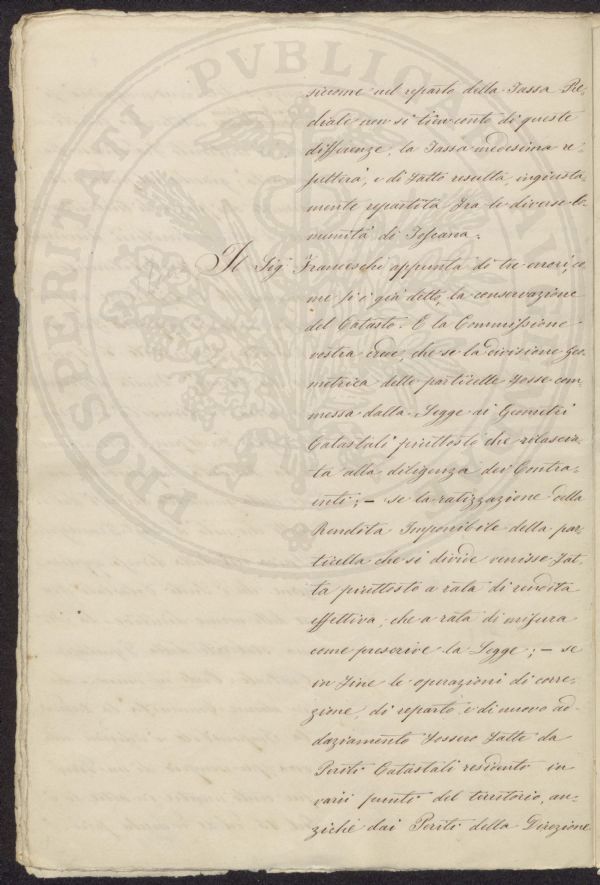 siccome nel reparto della Tassa Pre-
diale non si tien conto di queste
differenze, la Tassa medesima re-
sulterà, e di fatto resulta, ingiusta-
mente repartita fra le diverse Co-
munità di Toscana.
Il Sig.r Franceschi appunta di tre errori, co-
me si è già detto, la conservazione
del Catasto. E la Commissione
vostra crede, che se la divisione Geo-
metrica delle particelle fosse com-
messa dalla Legge ai Geometri
Catastali piuttosto che rilascia-
ta alla diligenza dei Contra-
enti; — se la ratizzazione della
Rendita Imponibile della par-
ticella che si divide venisse fat-
ta piuttosto a rata di rendita
effettiva, che a rata di misura
come prescrive la Legge; — se
in fine le operazioni di corre-
zione, di reparto e di nuovo ad-
daziamento fossero fatte da
Periti Catastali residenti in
varii punti del territorio, an-
ziché dai Periti della Direzione
PROSPERITATI PVBLICAE